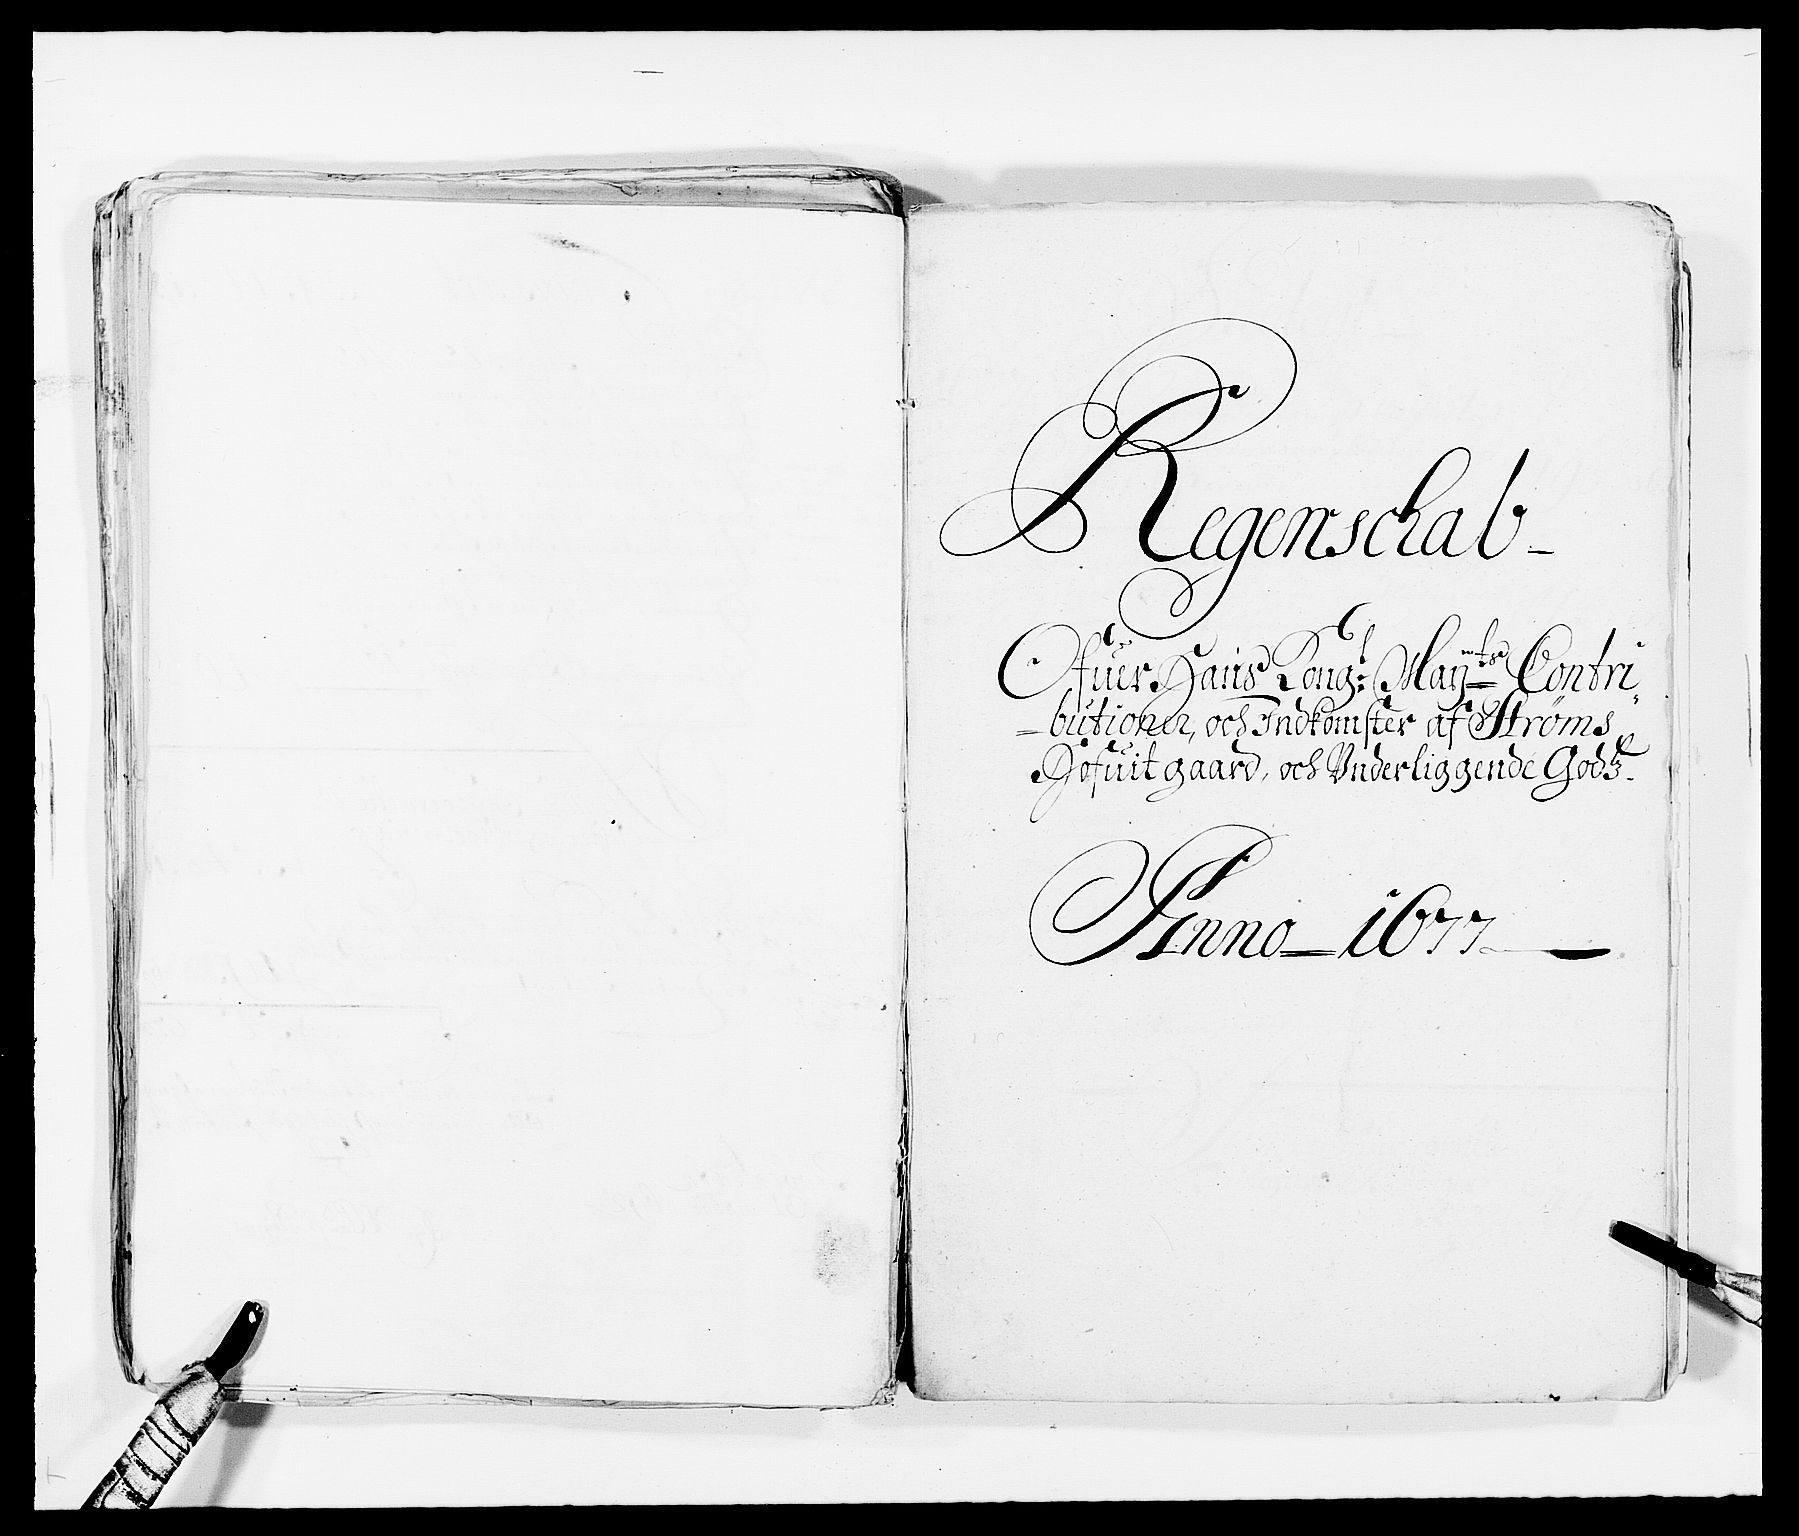 Regenschab
Ofuer Hans Kongl: Mayts Contri
butioner, och Indkomster af Strøms
Hofuitgaard, och Vnderliggende Godz.
Anno 1677